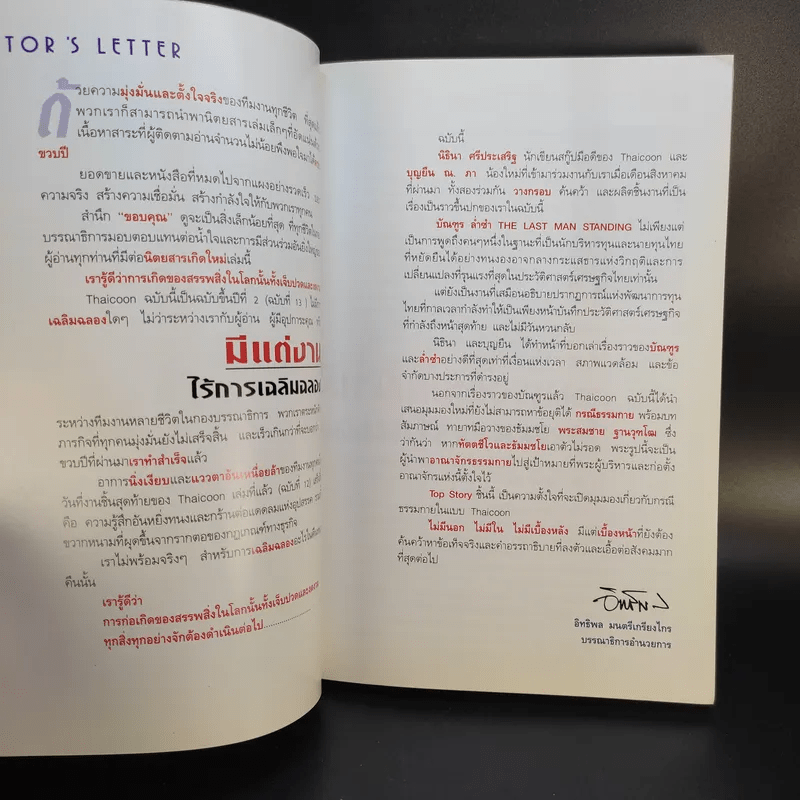 TOR'S LETTER
ด้วยความมุ่งมั่นและตั้งใจจริงของทีมงานทุกชีวิต ที่สุดแล้ว
พวกเราก็สามารถนำพานิตยสารเล่มเล็กๆที่อัดแน่นด้วย
เนื้อหาสาระที่ผู้ติดตามอ่านจำนวนไม่น้อยพึงพอใจมาได้
ขวบปี
ยอดขายและหนังสือที่หมดไปจากแผงอย่างรวดเร็ว
ความจริง สร้างความเชื่อมั่น สร้างกำลังใจให้กับพวกเราทุกคน
สำนึก "ขอบคุณ" ดูจะเป็นสิ่งเล็กน้อยที่สุด ที่ทุกชีวิตใน
บรรณาธิการมอบตอบแทนต่อน้ำใจและการมีส่วนร่วมอันยิ่งใหญ่
ผู้อ่านทุกท่านที่มีต่อนิตยสารเกิดใหม่เล่มนี้
เรารู้ดีว่าการเกิดของสรรพสิ่งในโลกนั้นทั้งเจ็บปวดและ
Thaicoon ฉบับนี้เป็นฉบับขึ้นปีที่ 2 (ฉบับที่ 13 ) ไม่มี
เฉลิมฉลองใดๆ ไม่ว่าระหว่างเรากับผู้อ่าน ผู้มีอุปการะคุณ
มีแต่งาน
ไร้การเฉลิมฉลอง
ระหว่างทีมงานหลายชีวิตในกองบรรณาธิการ พวกเราตระหนัก
ภารกิจที่ทุกคนมุ่งมั่นยังไม่เสร็จสิ้น และเร็วเกินกว่าที่จะ
ขวบปีที่ผ่านมาเราทำสำเร็จแล้ว
อาการนิ่งเงียบและแววตาอันเหนื่อยล้าของทีมงานทุก
วันที่งานชิ้นสุดท้ายของ Thaicoon เล่มที่แล้ว (ฉบับที่ 12)
คือ ความรู้สึกอันหยิ่งทนงและกร้านต่อแดดลมแห่งอุปสรรค
ขวากหนามที่ผุดขึ้นจากรากตอของกฎเกณฑ์ทางธุรกิจ
เราไม่พร้อมจริงๆ สำหรับการเฉลิมฉลองอะไร
คืนนั้น
เรารู้ดีว่า
การก่อเกิดของสรรพสิ่งในโลกนั้นทั้งเจ็บปวดและ
ทุกสิ่งทุกอย่างจักต้องดำเนินต่อไป...............
ฉบับนี้
นิธินา ศรีประเสริฐ นักเขียนสกู๊ปมือดีของ Thaicoon และ
บุญยืน ณ. ภา น้องใหม่ที่เข้ามาร่วมงานกับเราเมื่อเดือนสิงหาคม
ที่ผ่านมา ทั้งสองร่วมกัน วางกรอบ ค้นคว้า และผลิตชิ้นงานที่เป็น
เรื่องเป็นราวขึ้นปกของเราในฉบับนี้
บัณฑูร ล่ำซำ THE LAST MAN STANDING ไม่เพียงแต่
เป็นการพูดถึงคนๆหนึ่งในฐานะที่เป็นนักบริหารทุนและนายทุนไทย
ที่หยัดยืนได้อย่างทนงองอาจกลางกระแสธารแห่งวิกฤติและการ
เปลี่ยนแปลงที่รุนแรงที่สุดในประวัติศาสตร์เศรษฐกิจไทยเท่านั้น
แต่ยังเป็นงานที่เสมือนอธิบายปรากฏการณ์แห่งพัฒนาการทุน
ไทยที่กาลเวลากำลังทำให้เป็นเพียงหน้าบันทึกประวัติศาสตร์เศรษฐกิจ
ที่กำลังถึงหน้าสุดท้าย และไม่มีวันหวนกลับ
นิธินา และบุญยืน ได้ทำหน้าที่บอกเล่าเรื่องราวของบัณฑูร
และล่ำซำอย่างดีที่สุดเท่าที่เงื่อนแห่งเวลา สภาพแวดล้อม และข้อ
จำกัดบางประการที่ดำรงอยู่
นอกจากเรื่องราวของบัณฑูรแล้ว Thaicoon ฉบับนี้ได้นำ
เสนอมุมมองใหม่ที่ยังไม่สามารถหาข้อยุติได้ กรณีธรรมกาย พร้อมบท
สัมภาษณ์ ทายาทมือวางของธัมมชโย พระสมชาย ฐานวุฑโฒ ซึ่ง
ว่ากันว่า หากทัตตชีโวและธัมมชโยเอาตัวไม่รอด พระรูปนี้จะเป็น
ผู้นำพาอาณาจักรธรรมกายไปสู่เป้าหมายที่พระผู้บริหารและก่อตั้ง
อาณาจักรแห่งนี้ตั้งใจไว้
Top Story ชิ้นนี้ เป็นความตั้งใจที่จะเปิดมุมมองเกี่ยวกับกรณี
ธรรมกายในแบบ Thaicoon
ไม่มีนอก ไม่มีใน ไม่มีเบื้องหลัง มีแต่เบื้องหน้าที่ยังต้อง
ค้นคว้าหาข้อเท็จจริงและคำอรรถาธิบายที่ลงตัวและเอื้อต่อสังคมมาก
ที่สุดต่อไป
อิทธิพล มนตรีเกรียงไกร
บรรณาธิการอำนวยการ